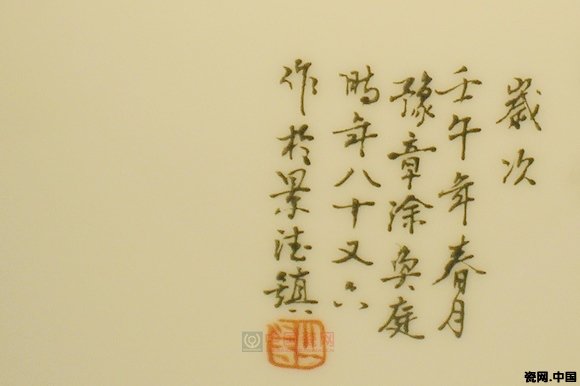 歲次
壬午年春月
豫章涂奐庭
時年八十又六
作於景德鎮
瓷网.中国